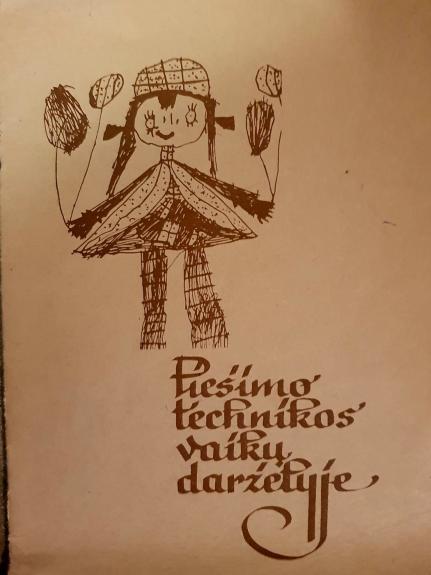 Piešimo
technikos
vaikų
darželyje